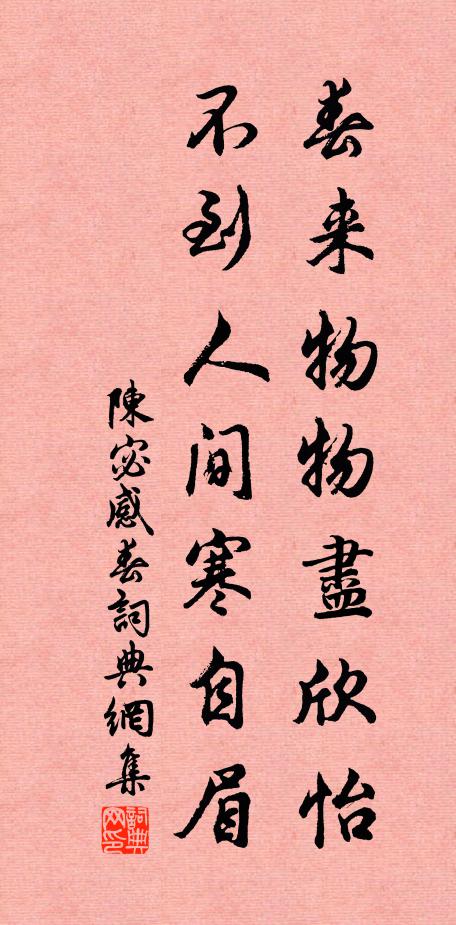 春来物物盡欣怡
不到人间寒自眉
陳宓感春詞典網集
詞典网印